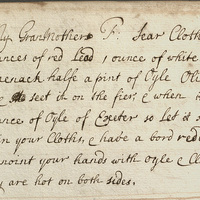 My GranMothers F: Sear Cloth
ances of red Lead 1 ounce of white
menach halfe a pint of Oyle Oli
seet it on the fier, & when it
ance of Oyle of Exseter so Let it
in your Cloths, & have a bord redy
noint your hands with oyle & Cl
y are hot on both sides.